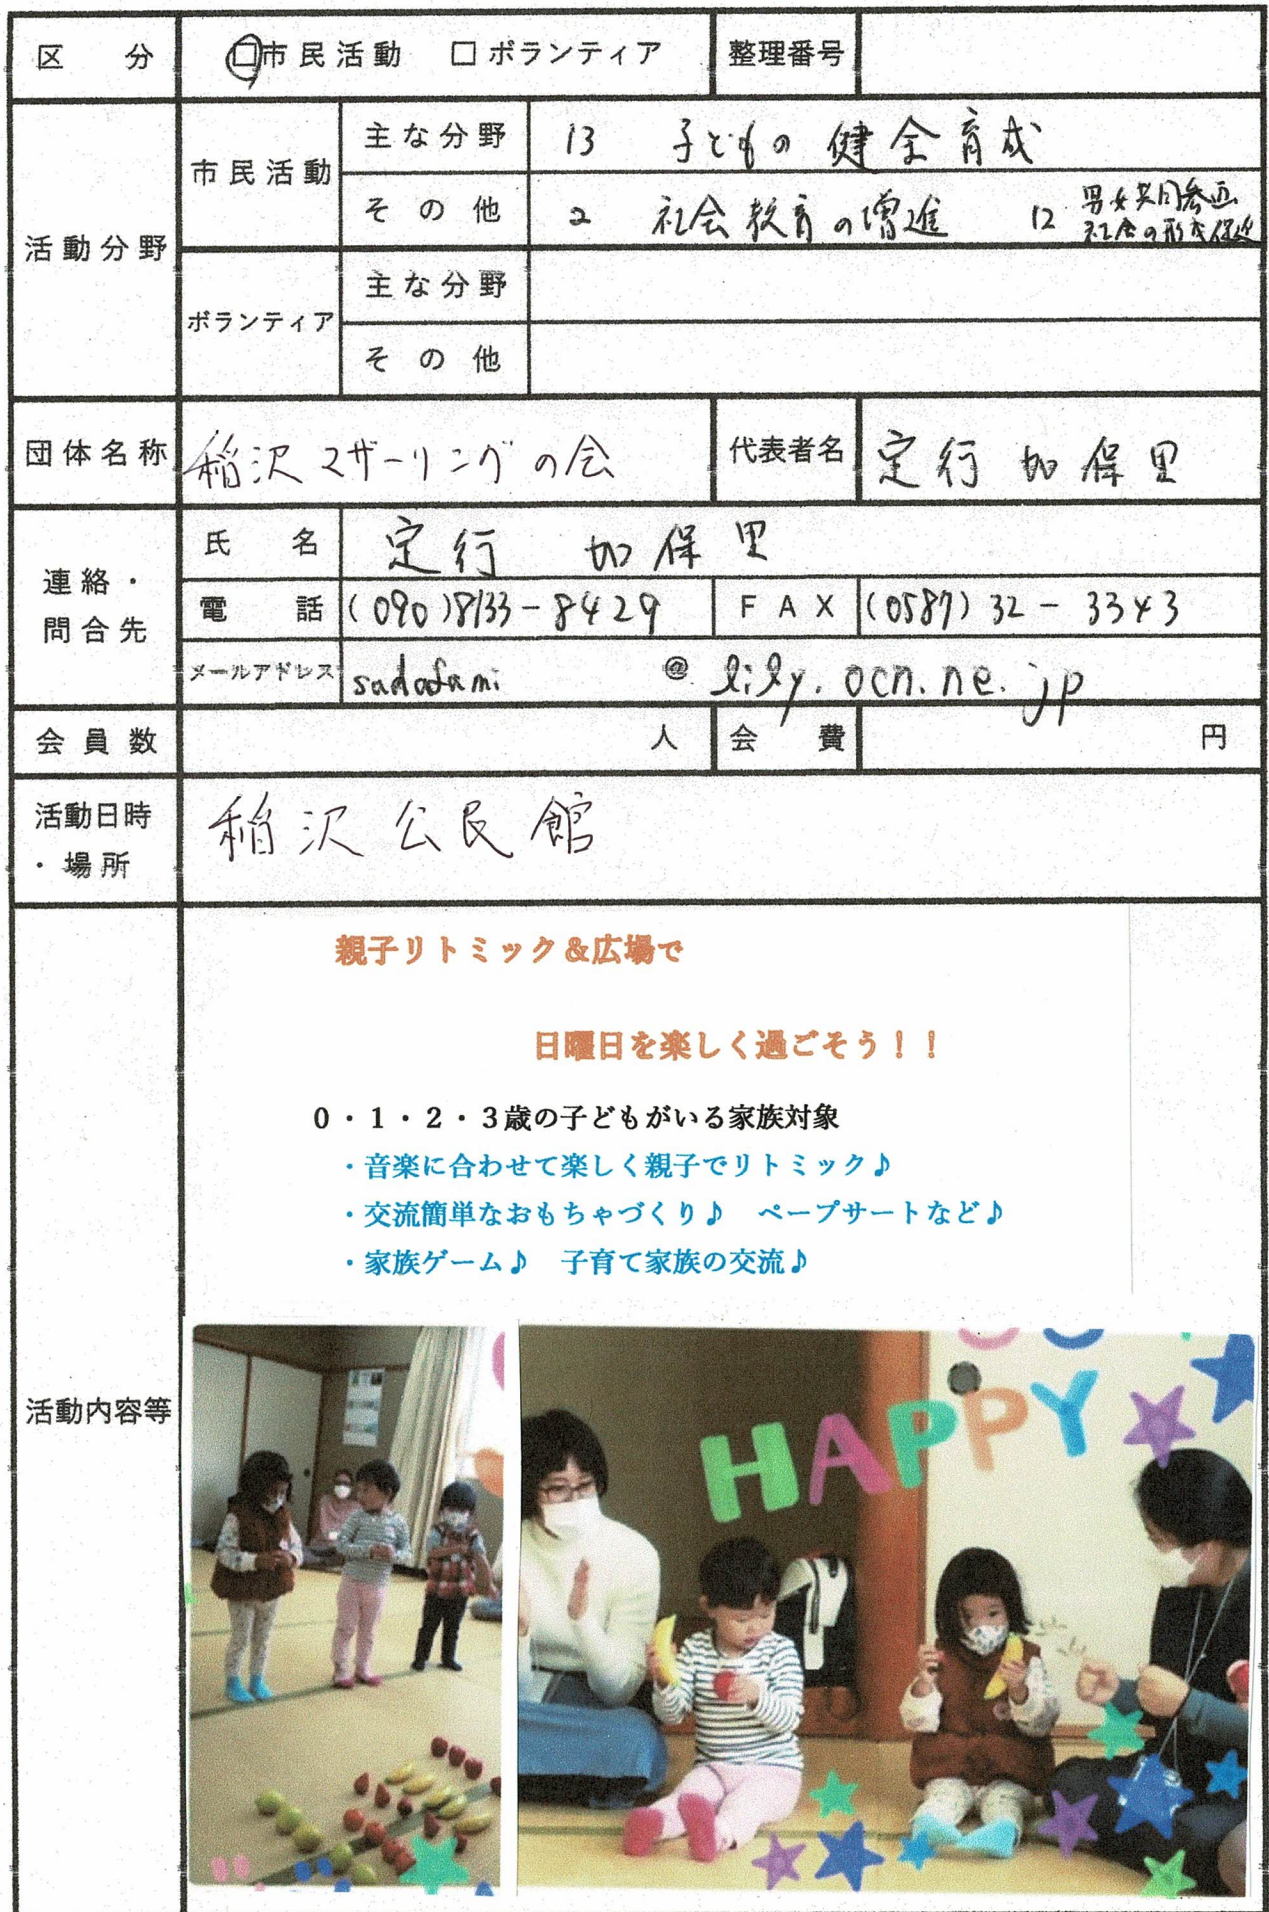 区 分 □市民活動 □ボランティア 整理番号
活動分野 市民活動 主な分野 13 子どもの健全育成
その他 2 社会教育の増進 12 男女共同参画
社会の形成促進
ボランティア 主な分野
その他
団体名称 稲沢マザーリングの会 代表者名 定行 加保里
連絡・問合先 氏名 定行 加保里
電話 (090)8133-8429 FAX (0587)32-3343
メールアドレス sadafami @ lily.ocn.ne.jp
会員数 人 会費 円
活動日時・場所 稲沢公民館
活動内容等
親子リトミック&広場で
日曜日を楽しく過ごそう!!
0・1・2・3歳の子どもがいる家族対象
・音楽に合わせて楽しく親子でリトミック♪
・交流簡単なおもちゃづくり♪ ペープサートなど♪
・家族ゲーム♪ 子育て家族の交流♪
HAPPY